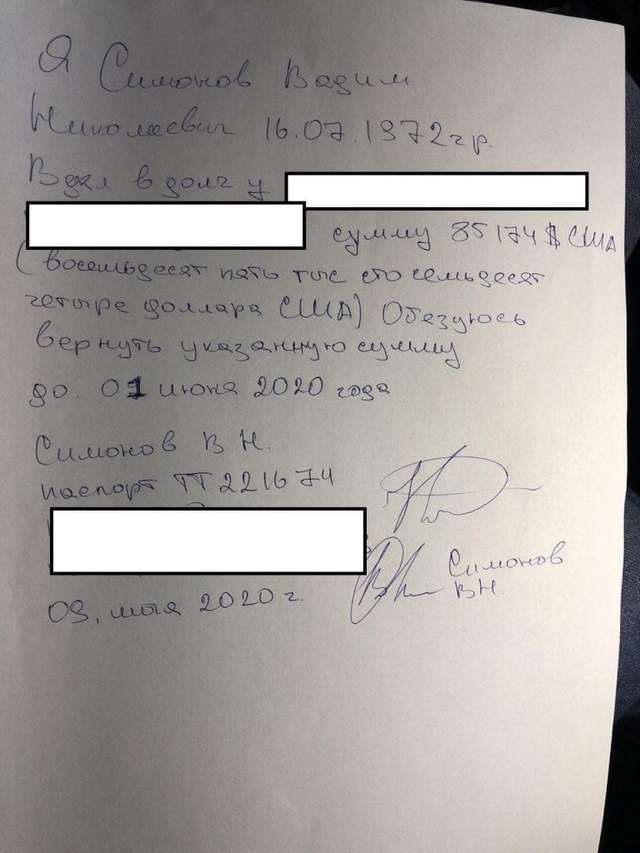 Я Симонов Вадим
Николаевич 16.07.1972 г.р.
Взял в долг у
сумму 85174 $ США
(восемьдесят пять тыс сто семьдесят
четыре доллара США) Обезуюсь
вернуть указанную сумму
до. 01 июня 2020 года
Симонов В Н.
паспорт ТТ 221674
09. мая 2020 г.
Симонов
В Н.